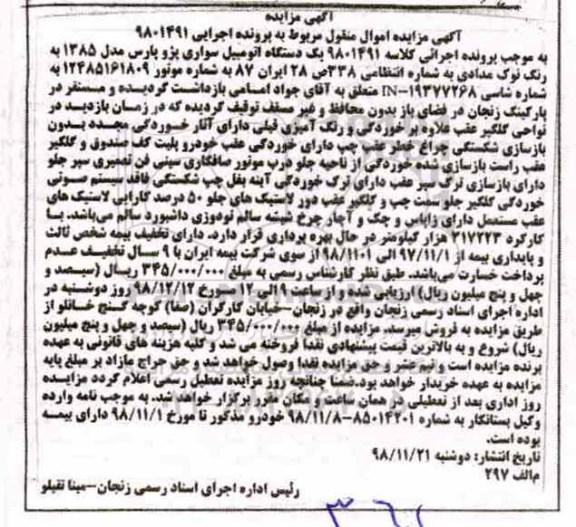 آگهی مزایده
آگهی مزایده اموال منقول مربوط به پرونده اجرایی ۹۸۰۱۴۹۱
به موجب پرونده اجرائی کلاسه ۹۸۰۱۴۹۱ یک دستگاه اتومبیل سواری پژو پارس مدل ۱۳۸۵ به
رنگ نوک مدادی به شماره انتظامی ۳۳۸ص ۲۸ ایران ۸۷ به شماره موتور ۱۲۴۸۵۱۶۱۸۰۹ به
شماره شاسی IN-۱۹۳۷۷۲۶۸ متعلق به آقای جواد امامی بازداشت گردیده و مستقر در
پارکینگ زنجان در فضای باز بدون محافظ و غیر مسقف توقیف گردیده که در زمان بازدید در
نواحی گلگیر عقب علاوه بر خوردگی و رنگ آمیزی قبلی دارای آثار خوردگی مجدد بدون
بازسازی شکستگی چراغ خطر عقب چپ دارای خوردگی عقب خودرو پلیت کف صندوق و گلگیر
عقب راست بازسازی شده خوردگی از ناحیه جلو درب موتور صافکاری سینی فن تعمیری سپر جلو
دارای بازسازی ترک سپر عقب دارای ترک خوردگی آینه بغل چپ شکستگی فاقد سیستم صوتی
خوردگی گلگیر جلو سمت چپ و گلگیر عقب دور لاستیک های جلو ۵۰ درصد کارایی لاستیک های
عقب مستعمل دارای زاپاس و جک و آچار چرخ شیشه سالم تودوزی داشبورد سالم می‌باشد. با
کارکرد ۳۱۷۲۲۳ هزار کیلومتر در حال بهره برداری قرار دارد. دارای تخفیف بیمه شخص ثالث
و پایداری بیمه از ۹۷/۱۱/۱ الی ۹۸/۱۱۰۱ از سوی شرکت بیمه ایران با ۹ سال تخفیف عدم
پرداخت خسارت می‌باشد. طبق نظر کارشناس رسمی به مبلغ ۳۴۵/۰۰۰/۰۰۰ ریال (سیصد و
چهل و پنج میلیون ریال) ارزیابی شده و از ساعت ۹ الی ۱۲ مورخ ۹۸/۱۲/۱۲ روز دوشنبه در
اداره اجرای اسناد رسمی زنجان واقع در زنجان–خیابان کارگران (صفا) کوچه گنج خانلو از
طریق مزایده به فروش میرسد. مزایده از مبلغ ۳۴۵/۰۰۰/۰۰۰ ریال (سیصد و چهل و پنج میلیون
ریال) شروع و به بالاترین قیمت پیشنهادی نقدا فروخته می شد و کلیه هزینه های قانونی به عهده
برنده مزایده است و نیم عشر و حق مزایده نقدا وصول خواهد شد و حق حراج مازاد بر مبلغ پایه
مزایده به عهده خریدار خواهد بود.ضمنا چنانچه روز مزایده تعطیل رسمی اعلام گردد مزایده
روز اداری بعد از تعطیلی در همان ساعت و مکان مقرر برگزار خواهد شد. به موجب نامه وارده
وکیل بستانکار به شماره ۸۵۰۱۴۲۰۱–۹۸/۱۱/۸ خودرو مذکور تا مورخ ۹۸/۱۱/۱ دارای بیمه
بوده است.
تاریخ انتشار: دوشنبه ۹۸/۱۱/۲۱
م‌الف ۲۹۷
رئیس اداره اجرای اسناد رسمی زنجان–مینا تقیلو